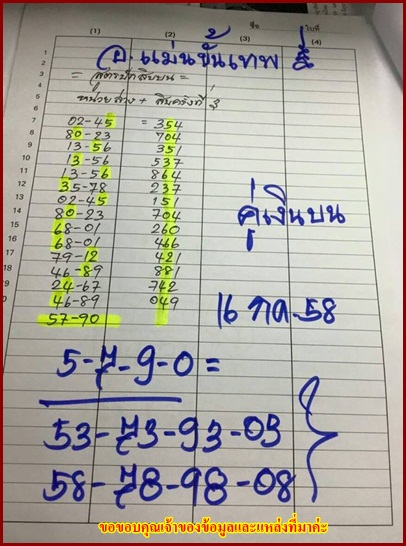 (1) (2) ชื่อ (3) วันที่ (4)
อ. แม่นขั้นเทพ
= สูตรปักสิบบน =
หน่วยล่าง + สิบครั้งที่
02-45 = 354
80-23 704
13-56 351
13-56 537
13-56 864
35-78 237
02-45 151
80-23 704
68-01 260
68-01 466
79-12 421
46-89 881
24-67 742
46-89 049
57-90
คู่เงินบน
16 กค. 58
5-7-9-0 =
53-73-93-03
58-78-98-08
ขอขอบคุณเจ้าของข้อมูลและแหล่งที่มาค่ะ